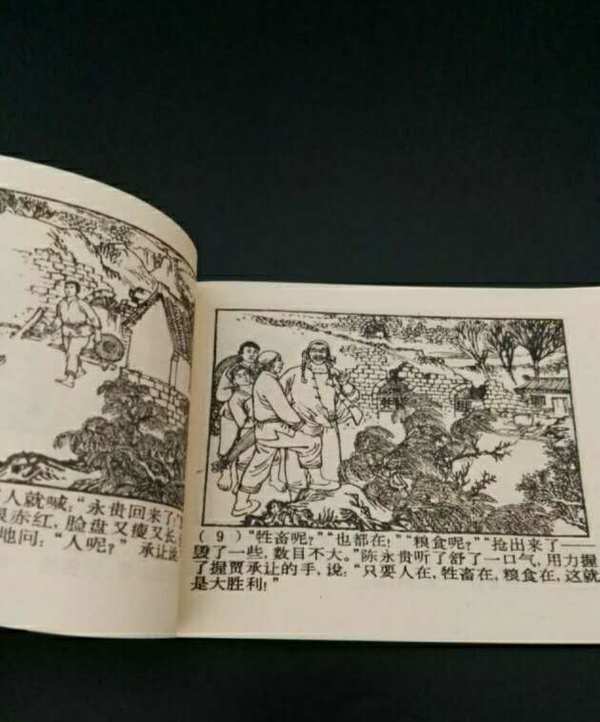 人就喊：“永贵回来了！
眼赤红，脸盘又瘦又长
地问：“人呢？” 承让说
(9) “牲畜呢？”“也都在！”“粮食呢？”“抢出来了——
毁了一些，数目不大。”陈永贵听了舒了一口气，用力握
了握贾承让的手，说：“只要人在，牲畜在，粮食在，这就
是大胜利！”